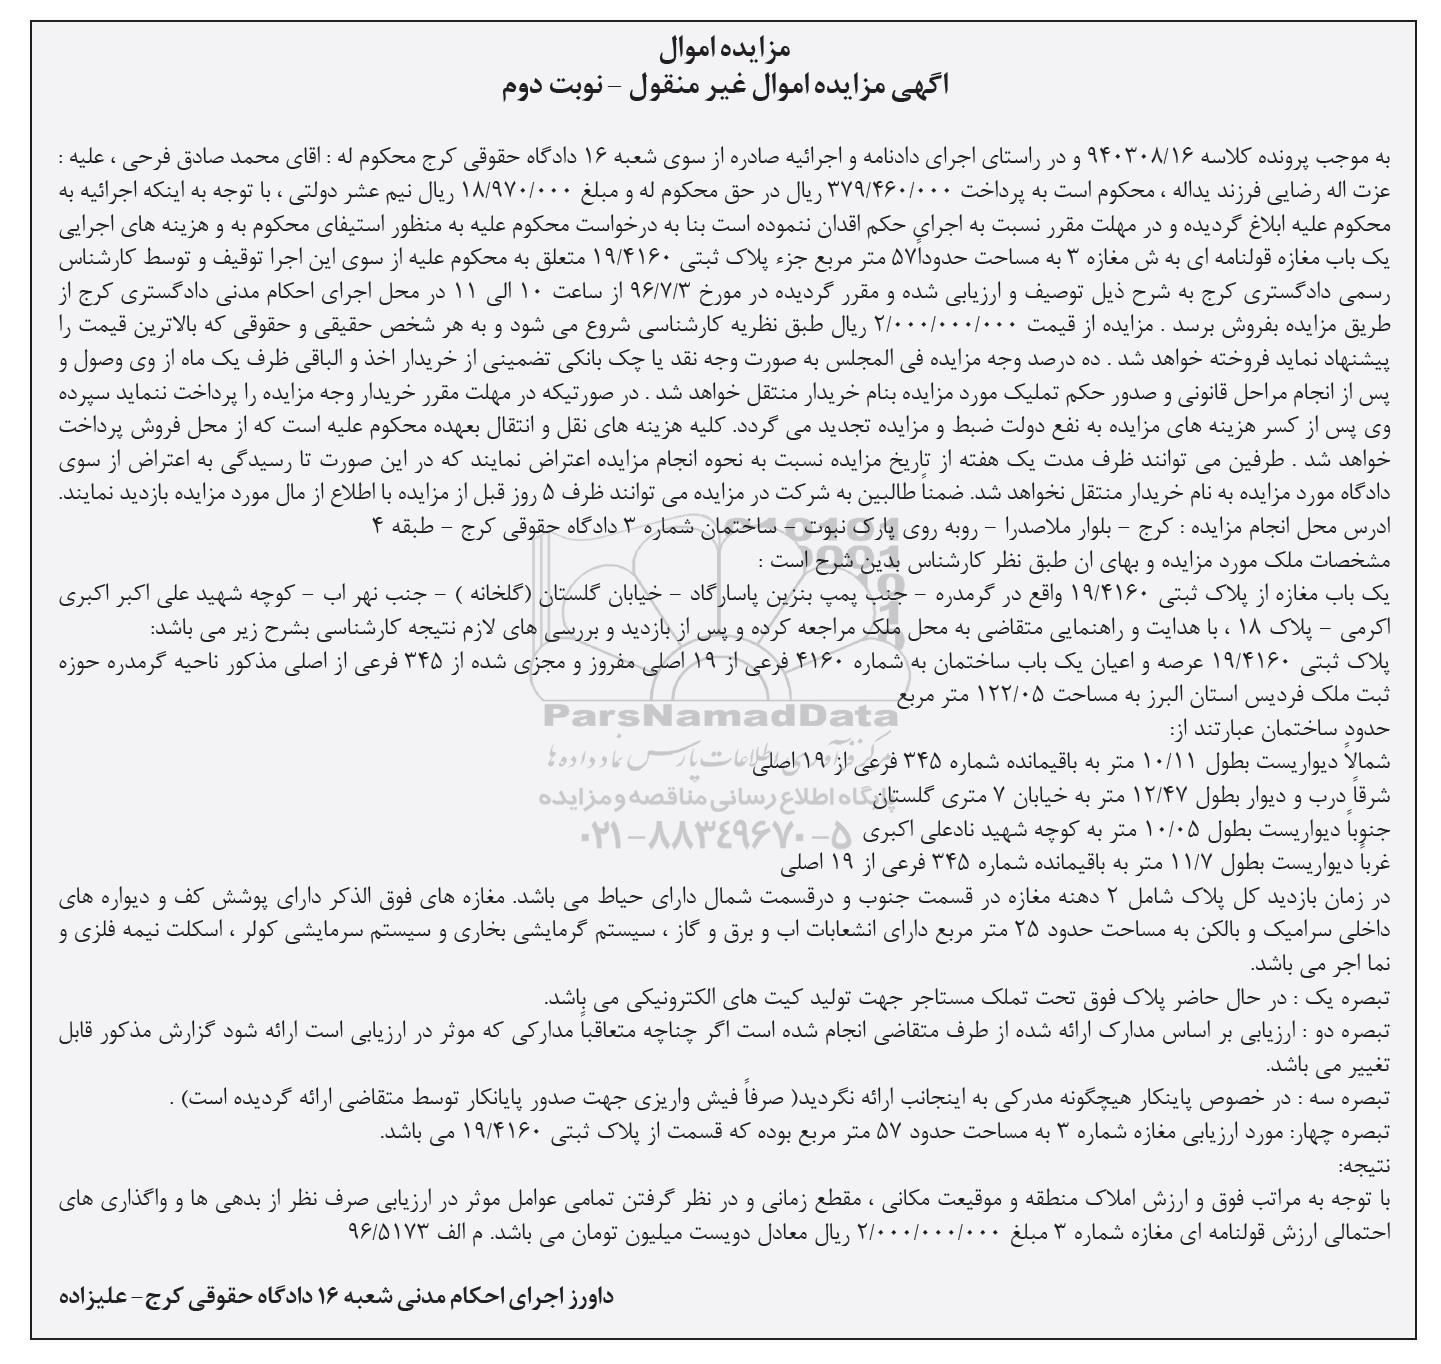 مزایده اموال
اگهی مزایده اموال غیر منقول – نوبت دوم
به موجب پرونده کلاسه ۹۴۰۳۰۸/۱۶ و در راستای اجرای دادنامه و اجرائیه صادره از سوی شعبه ۱۶ دادگاه حقوقی کرج محکوم له : اقای محمد صادق فرحی ، علیه :
عزت اله رضایی فرزند یداله ، محکوم است به پرداخت ۳۷۹/۴۶۰/۰۰۰ ریال در حق محکوم له و مبلغ ۱۸/۹۷۰/۰۰۰ ریال نیم عشر دولتی ، با توجه به اینکه اجرائیه به
محکوم علیه ابلاغ گردیده و در مهلت مقرر نسبت به اجرای حکم اقدان ننموده است بنا به درخواست محکوم علیه به منظور استیفای محکوم به و هزینه های اجرایی
یک باب مغازه قولنامه ای به ش مغازه ۳ به مساحت حدوداً۵۷ متر مربع جزء پلاک ثبتی ۱۹/۴۱۶۰ متعلق به محکوم علیه از سوی این اجرا توقیف و توسط کارشناس
رسمی دادگستری کرج به شرح ذیل توصیف و ارزیابی شده و مقرر گردیده در مورخ ۹۶/۷/۳ از ساعت ۱۰ الی ۱۱ در محل اجرای احکام مدنی دادگستری کرج از
طریق مزایده بفروش برسد . مزایده از قیمت ۲/۰۰۰/۰۰۰/۰۰۰ ریال طبق نظریه کارشناسی شروع می شود و به هر شخص حقیقی و حقوقی که بالاترین قیمت را
پیشنهاد نماید فروخته خواهد شد . ده درصد وجه مزایده فی المجلس به صورت وجه نقد یا چک بانکی تضمینی از خریدار اخذ و الباقی ظرف یک ماه از وی وصول و
پس از انجام مراحل قانونی و صدور حکم تملیک مورد مزایده بنام خریدار منتقل خواهد شد . در صورتیکه در مهلت مقرر خریدار وجه مزایده را پرداخت ننماید سپرده
وی پس از کسر هزینه های مزایده به نفع دولت ضبط و مزایده تجدید می گردد. کلیه هزینه های نقل و انتقال بعهده محکوم علیه است که از محل فروش پرداخت
خواهد شد . طرفین می توانند ظرف مدت یک هفته از تاریخ مزایده نسبت به نحوه انجام مزایده اعتراض نمایند که در این صورت تا رسیدگی به اعتراض از سوی
دادگاه مورد مزایده به نام خریدار منتقل نخواهد شد. ضمناً طالبین به شرکت در مزایده می توانند ظرف ۵ روز قبل از مزایده با اطلاع از مال مورد مزایده بازدید نمایند.
ادرس محل انجام مزایده : کرج – بلوار ملاصدرا – روبه روی پارک نبوت – ساختمان شماره ۳ دادگاه حقوقی کرج – طبقه ۴
مشخصات ملک مورد مزایده و بهای ان طبق نظر کارشناس بدین شرح است :
یک باب مغازه از پلاک ثبتی ۱۹/۴۱۶۰ واقع در گرمدره – جنب پمپ بنزین پاسارگاد – خیابان گلستان (گلخانه ) – جنب نهر اب – کوچه شهید علی اکبر اکبری
اکرمی – پلاک ۱۸ ، با هدایت و راهنمایی متقاضی به محل ملک مراجعه کرده و پس از بازدید و بررسی های لازم نتیجه کارشناسی بشرح زیر می باشد:
پلاک ثبتی ۱۹/۴۱۶۰ عرصه و اعیان یک باب ساختمان به شماره ۴۱۶۰ فرعی از ۱۹ اصلی مفروز و مجزی شده از ۳۴۵ فرعی از اصلی مذکور ناحیه گرمدره حوزه
ثبت ملک فردیس استان البرز به مساحت ۱۲۲/۰۵ متر مربع
ParsNamadData
حدود ساختمان عبارتند از:
شمالاً دیواریست بطول ۱۰/۱۱ متر به باقیمانده شماره ۳۴۵ فرعی از ۱۹ اصلی
مرکز فرآوری اطلاعات پارس نماد داده ها
شرقاً درب و دیوار بطول ۱۲/۴۷ متر به خیابان ۷ متری گلستان
پایگاه اطلاع رسانی مناقصه و مزایده
جنوباً دیواریست بطول ۱۰/۰۵ متر به کوچه شهید نادعلی اکبری
۰۲۱-۸۸۳۴۹۶۷۰-۵
غرباً دیواریست بطول ۱۱/۷ متر به باقیمانده شماره ۳۴۵ فرعی از ۱۹ اصلی
در زمان بازدید کل پلاک شامل ۲ دهنه مغازه در قسمت جنوب و درقسمت شمال دارای حیاط می باشد. مغازه های فوق الذکر دارای پوشش کف و دیواره های
داخلی سرامیک و بالکن به مساحت حدود ۲۵ متر مربع دارای انشعابات اب و برق و گاز ، سیستم گرمایشی بخاری و سیستم سرمایشی کولر ، اسکلت نیمه فلزی و
نما اجر می باشد.
تبصره یک : در حال حاضر پلاک فوق تحت تملک مستاجر جهت تولید کیت های الکترونیکی می باشد.
تبصره دو : ارزیابی بر اساس مدارک ارائه شده از طرف متقاضی انجام شده است اگر چناچه متعاقباً مدارکی که موثر در ارزیابی است ارائه شود گزارش مذکور قابل
تغییر می باشد.
تبصره سه : در خصوص پاینکار هیچگونه مدرکی به اینجانب ارائه نگردید( صرفاً فیش واریزی جهت صدور پایانکار توسط متقاضی ارائه گردیده است) .
تبصره چهار: مورد ارزیابی مغازه شماره ۳ به مساحت حدود ۵۷ متر مربع بوده که قسمت از پلاک ثبتی ۱۹/۴۱۶۰ می باشد.
نتیجه:
با توجه به مراتب فوق و ارزش املاک منطقه و موقیعت مکانی ، مقطع زمانی و در نظر گرفتن تمامی عوامل موثر در ارزیابی صرف نظر از بدهی ها و واگذاری های
احتمالی ارزش قولنامه ای مغازه شماره ۳ مبلغ ۲/۰۰۰/۰۰۰/۰۰۰ ریال معادل دویست میلیون تومان می باشد. م الف ۹۶/۵۱۷۳
داورز اجرای احکام مدنی شعبه ۱۶ دادگاه حقوقی کرج– علیزاده